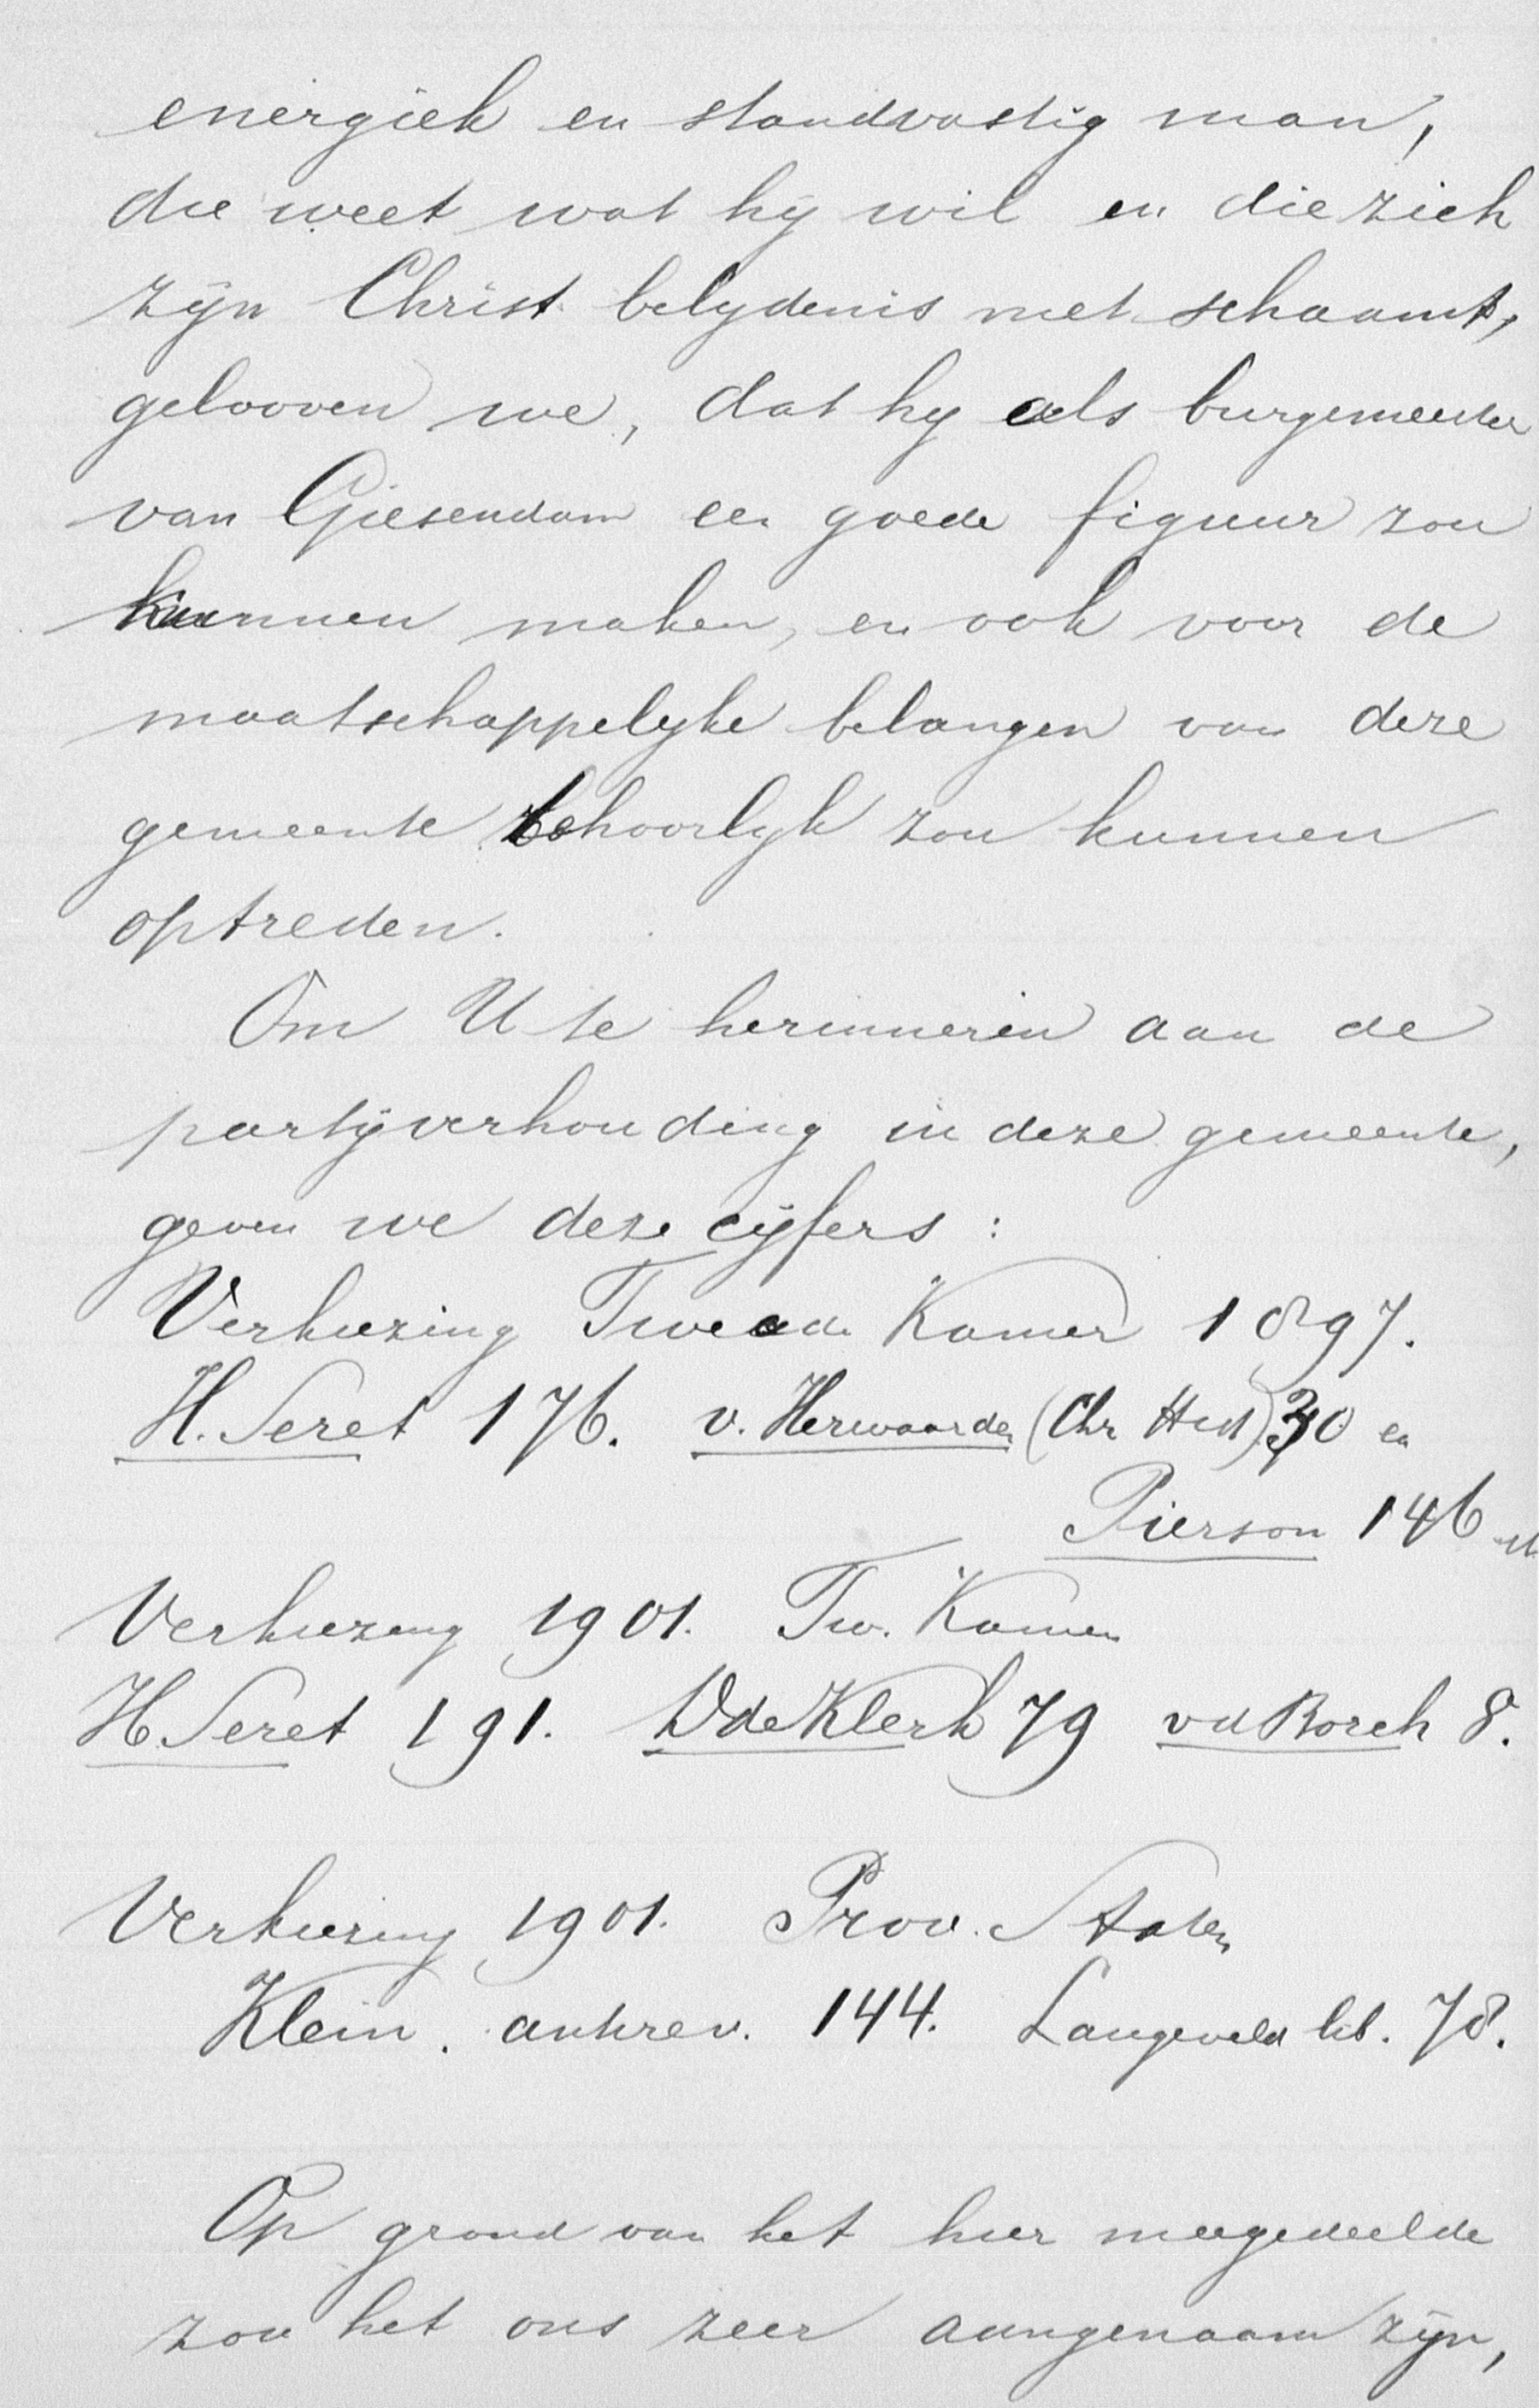 energiek en standvastig man,
die weet wat hij wil en die zich
zijn Christ. belijdenis niet schaamt,
gelooven we, dat hij als burgemeester
van Giesendam een goede figuur zou
kunnen maken, en ook voor de
maatschappelijke belangen van deze
gemeente behoorlijk zou kunnen
optreden.
Om U te herinneren aan de
partijverhouding in deze gemeente,
geven we deze cijfers:
Verkiezing Tweede Kamer 1897.
H. Seret 176. v. Herwaarden (Chr Hist) 30 en
Pierson 146 st
Verkiezing 1901. Tw. Kamer
H. Seret 191. D de Klerk 79 vd Borch 8.
Verkiezing 1901. Prov. Staten
Klein. antirev. 144. Langeveld lib. 78.
Op grond van het hier meegedeelde
zou het ons zeer aangenaam zijn,